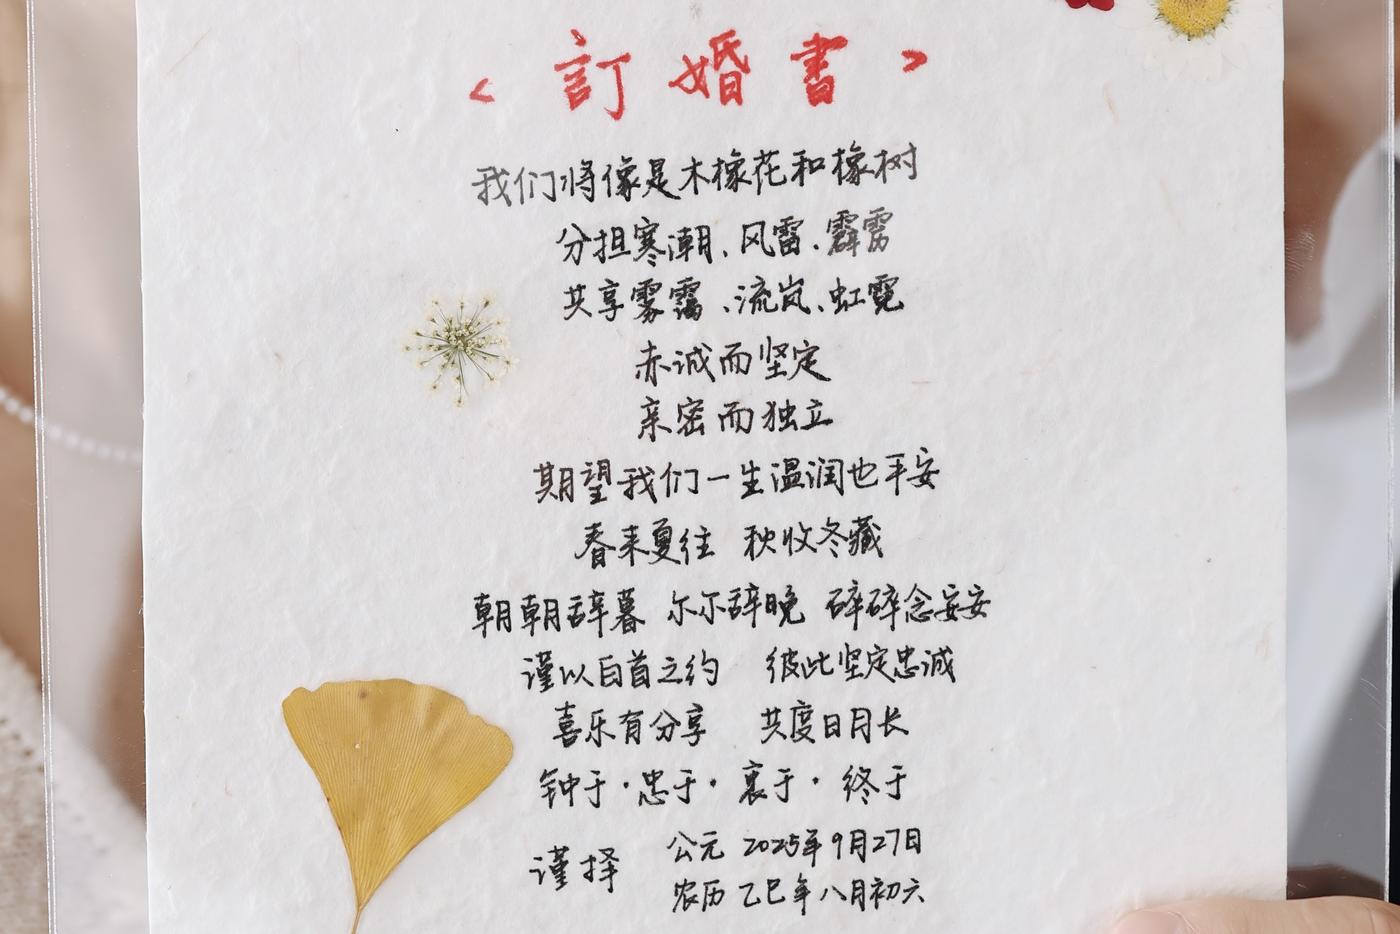 <訂婚書>
我们将像是木橡花和橡树
分担寒潮、风雷、霹雳
共享雾霭、流岚、虹霓
赤诚而坚定
亲密而独立
期望我们一生温润也平安
春来夏往 秋收冬藏
朝朝辞暮 尔尔辞晚 碎碎念安安
谨以白首之约 彼此坚定忠诚
喜乐有分享 共度日月长
钟于·忠于·衷于·终于
谨择
公元 2025年9月27日
农历 乙巳年八月初六